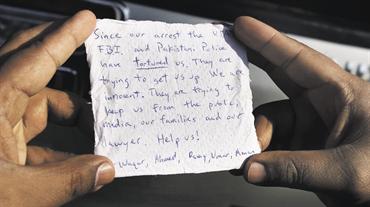 Since our arrest the U.S.
FBI, and Pakistani Police
have tortured us. They are
trying to set us up. We are
innocent. They are trying to
keep us from the public,
media, our families and our
lawyer. Help us!
Waqar, Ahmed, Ramy, Umar, Aman